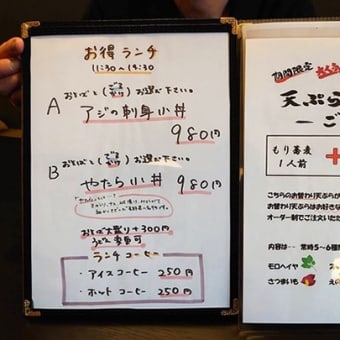 お得 ランチ
11:30〜14:30
A おそばと お選び下さい。
アジの刺身小丼
980円
B おそばと お選び下さい。
やたら小丼 980円
おそば大盛り+300円
うどん変更可
ランチ コーヒー
・アイスコーヒー 250円
・ホットコーヒー 250円
期間限定
天ぷら
もり蕎麦
1人前
+
こちらのお替わり天ぷらが
お替わり天ぷらはお好きな
オーダー制でご注文いた
内容は‥ 常時5〜6種
モロヘイヤ
さつまいも